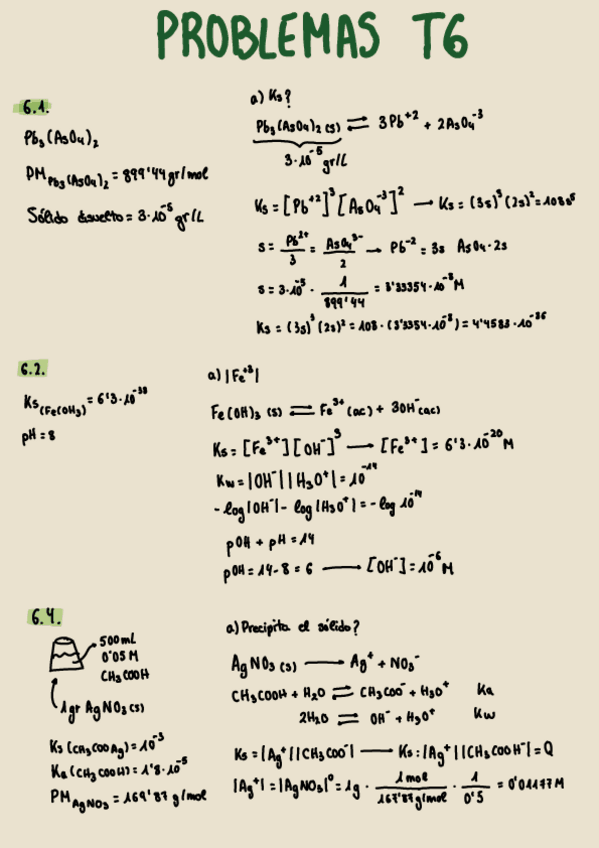 PROBLEMAS T6
6.1.
Pb₃(AsO₄)₂
PM Pb₃(AsO₄)₂ = 899'44 gr/mol
Sólido disuelto = 3·10⁻⁵ gr/L
a) Ks?
Pb₃(AsO₄)₂ (s) ⇌ 3Pb⁺² + 2AsO₄⁻³
3·10⁻⁵ gr/L
Ks = [Pb⁺²]³ [AsO₄⁻³]² → Ks = (3s)³ (2s)² = 108s⁵
s = Pb²⁺/3 = AsO₄³⁻/2 → Pb⁻² = 3s AsO₄·2s
s = 3·10⁻⁵ · 1/899'44 = 3'33354·10⁻⁸ M
Ks = (3s)³ (2s)² = 108 · (3'3354·10⁻⁸) = 4'4583·10⁻³⁶
6.2.
Ks (Fe(OH)₃) = 6'3·10⁻³⁸
pH = 8
a) |Fe⁺³|
Fe(OH)₃ (s) ⇌ Fe³⁺ (ac) + 3OH⁻ (ac)
Ks = [Fe³⁺][OH⁻]³ → [Fe³⁺] = 6'3·10⁻²⁰ M
Kw = |OH⁻| |H₃O⁺| = 10⁻¹⁴
-log|OH⁻| - log|H₃O⁺| = -log 10⁻¹⁴
pOH + pH = 14
pOH = 14 - 8 = 6 → [OH⁻] = 10⁻⁶ M
6.4.
500 mL
0'05 M
CH₃COOH
1gr AgNO₃ (s)
Ks (CH₃COOAg) = 10⁻³
Ka (CH₃COOH) = 1'8·10⁻⁵
PM AgNO₃ = 169'87 g/mol
a) Precipita el sólido?
AgNO₃ (s) → Ag⁺ + NO₃⁻
CH₃COOH + H₂O ⇌ CH₃COO⁻ + H₃O⁺ Ka
2H₂O ⇌ OH⁻ + H₃O⁺ Kw
Ks = |Ag⁺| |CH₃COO⁻| → Ks: |Ag⁺| |CH₃COOH⁻| = Q
|Ag⁺| = |AgNO₃|⁰ = 1g · 1 mol/167'87 g/mol · 1/0'5 = 0'01177 M